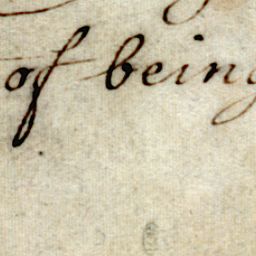 of being